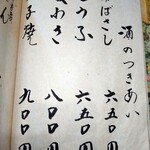 酒のつきあい
ばさし 六五〇円
うふ 六五〇円
わさ 八〇〇円
子焼 九〇〇円